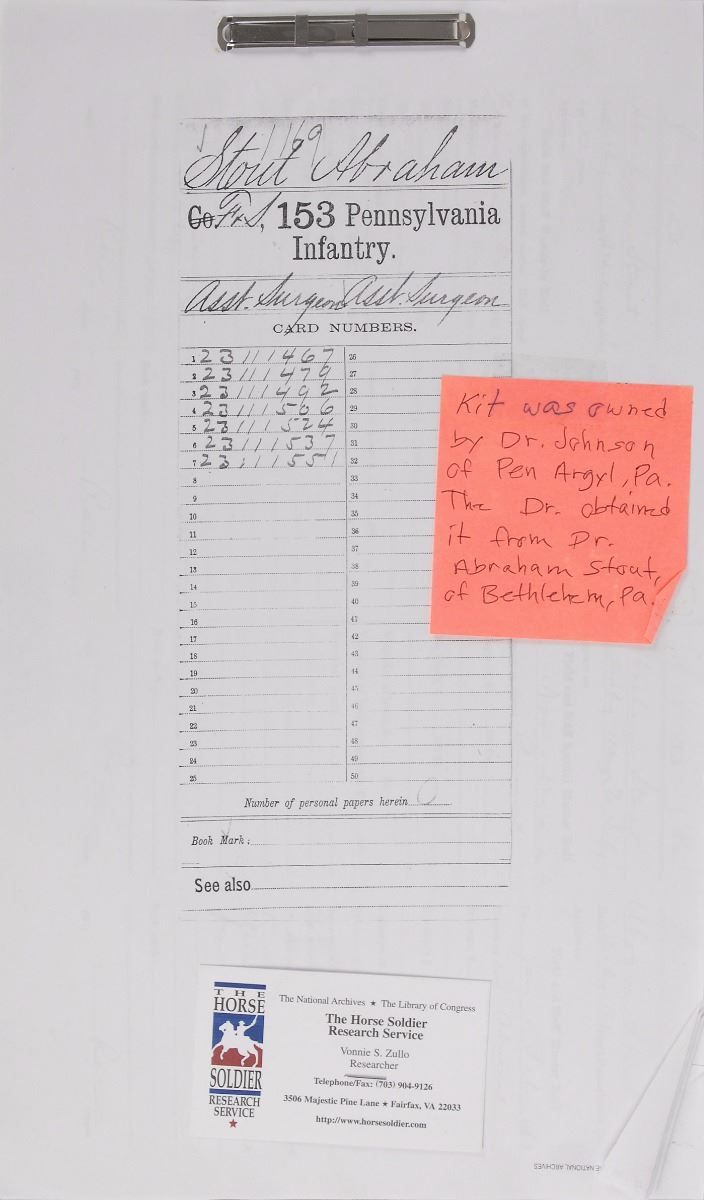 1169
Stout Abraham
Co. F & S, 153 Pennsylvania
Infantry.
Asst. Surgeon Asst. Surgeon
CARD NUMBERS.
1 23111467
2 23111479
3 23111492
4 23111506
5 23111524
6 23111537
7 23111551
8
9
10
11
12
13
14
15
16
17
18
19
20
21
22
23
24
25
26
27
28
29
30
31
32
33
34
35
36
37
38
39
40
41
42
43
44
45
46
47
48
49
50
Number of personal papers herein 0
Book Mark:
See also
Kit was owned
by Dr. Johnson
of Pen Argyl, Pa.
The Dr. obtained
it from Dr.
Abraham Stout,
of Bethlehem, Pa.
THE
HORSE
SOLDIER
RESEARCH
SERVICE
The National Archives ★ The Library of Congress
The Horse Soldier
Research Service
Vonnie S. Zullo
Researcher
Telephone/Fax: (703) 904-9126
3506 Majestic Pine Lane ★ Fairfax, VA 22033
http://www.horsesoldier.com
E NATIONAL ARCHIVES